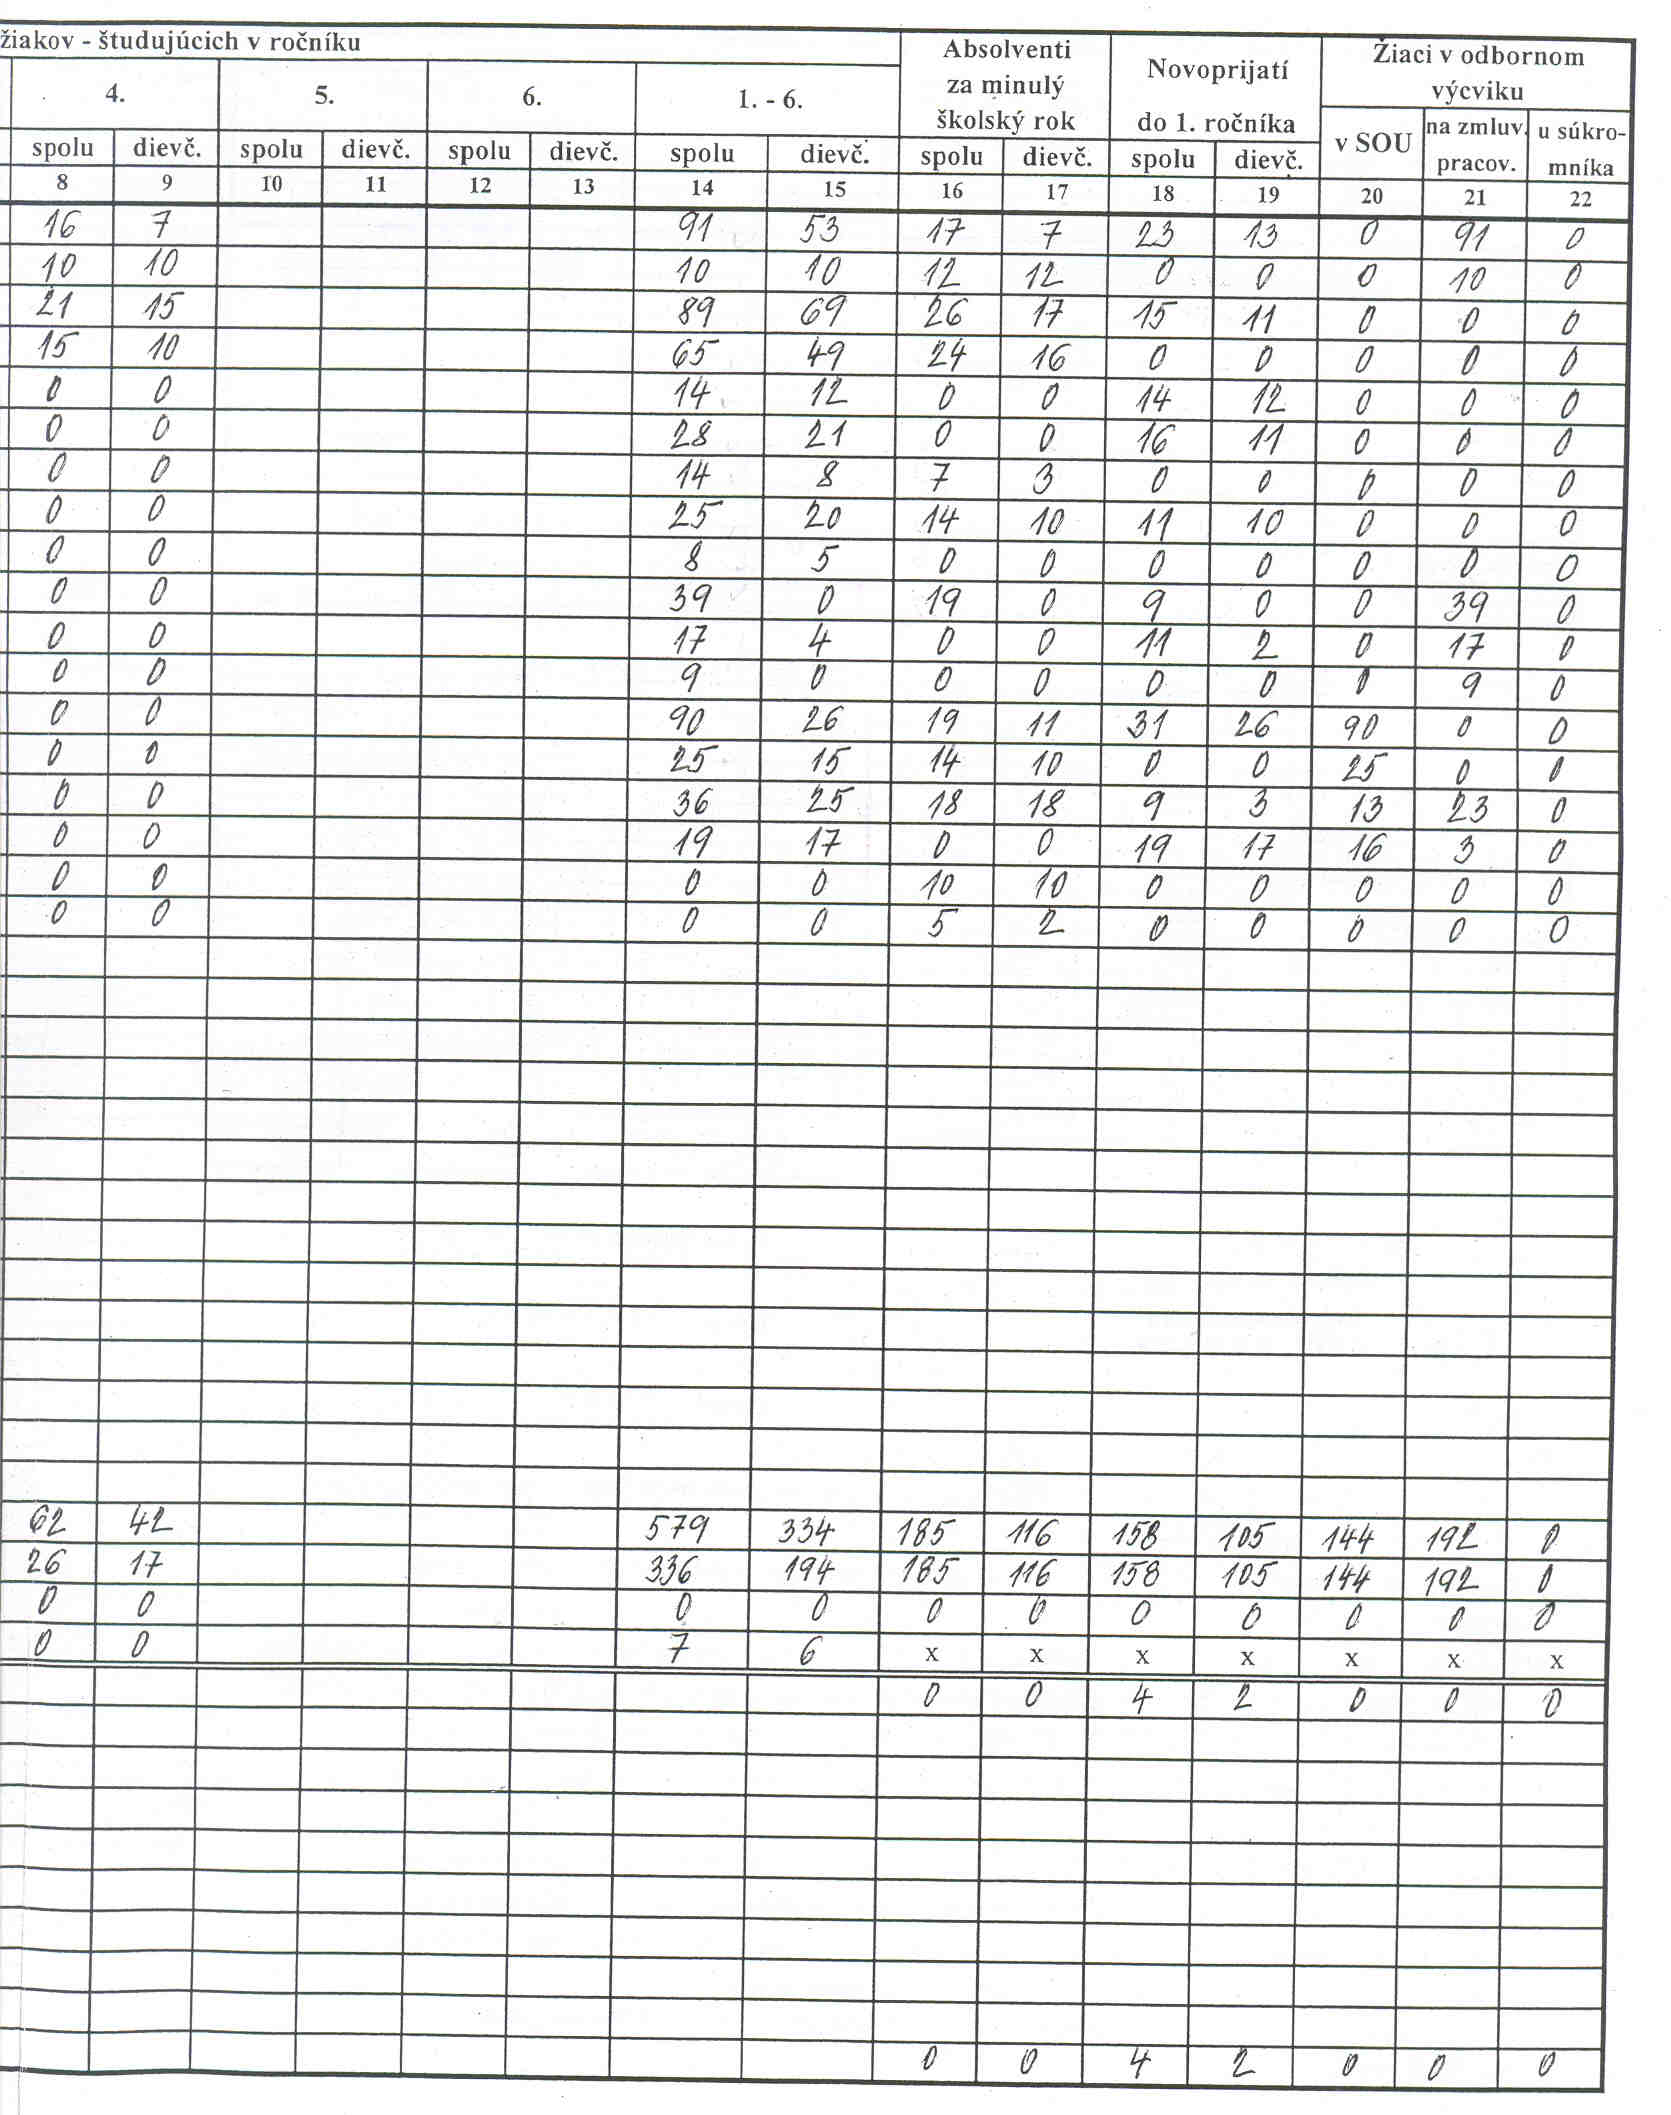 žiakov - študujúcich v ročníku Absolventi za minulý školský rok Novoprijatí do 1. ročníka Žiaci v odbornom výcviku
4. 5. 6. 1. - 6. v SOU na zmluv. pracov. u súkro- mníka
spolu dievč. spolu dievč. spolu dievč. spolu dievč. spolu dievč. spolu dievč.
8 9 10 11 12 13 14 15 16 17 18 19 20 21 22
16 7 91 53 17 7 23 13 0 91 0
10 10 10 10 12 12 0 0 0 10 0
21 15 89 69 26 17 15 11 0 0 0
15 10 65 49 24 16 0 0 0 0 0
0 0 14 12 0 0 14 12 0 0 0
0 0 28 21 0 0 16 11 0 0 0
0 0 14 8 7 3 0 0 0 0 0
0 0 25 20 14 10 11 10 0 0 0
0 0 8 5 0 0 0 0 0 0 0
0 0 39 0 19 0 9 0 0 39 0
0 0 17 4 0 0 11 2 0 17 0
0 0 9 0 0 0 0 0 0 9 0
0 0 90 26 19 11 31 26 90 0 0
0 0 25 15 14 10 0 0 25 0 0
0 0 36 25 18 18 9 3 13 23 0
0 0 19 17 0 0 19 17 16 3 0
0 0 0 0 10 10 0 0 0 0 0
0 0 0 0 5 2 0 0 0 0 0
62 42 579 334 185 116 158 105 144 192 0
26 17 336 194 185 116 158 105 144 192 0
0 0 0 0 0 0 0 0 0 0 0
0 0 7 6 x x x x x x x
0 0 4 2 0 0 0
0 0 4 2 0 0 0